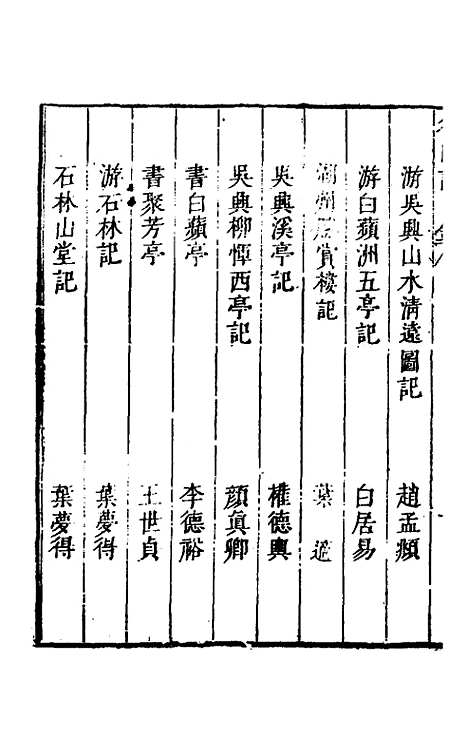 游吳興山水清遠圖記 趙孟頫
游白蘋洲五亭記 白居易
湖州勝賞樓記 葉適
吳興溪亭記 權德輿
吳興柳惲西亭記 顏眞卿
書白蘋亭 李德裕
書聚芳亭 王世貞
游石林記 葉夢得
石林山堂記 葉夢得